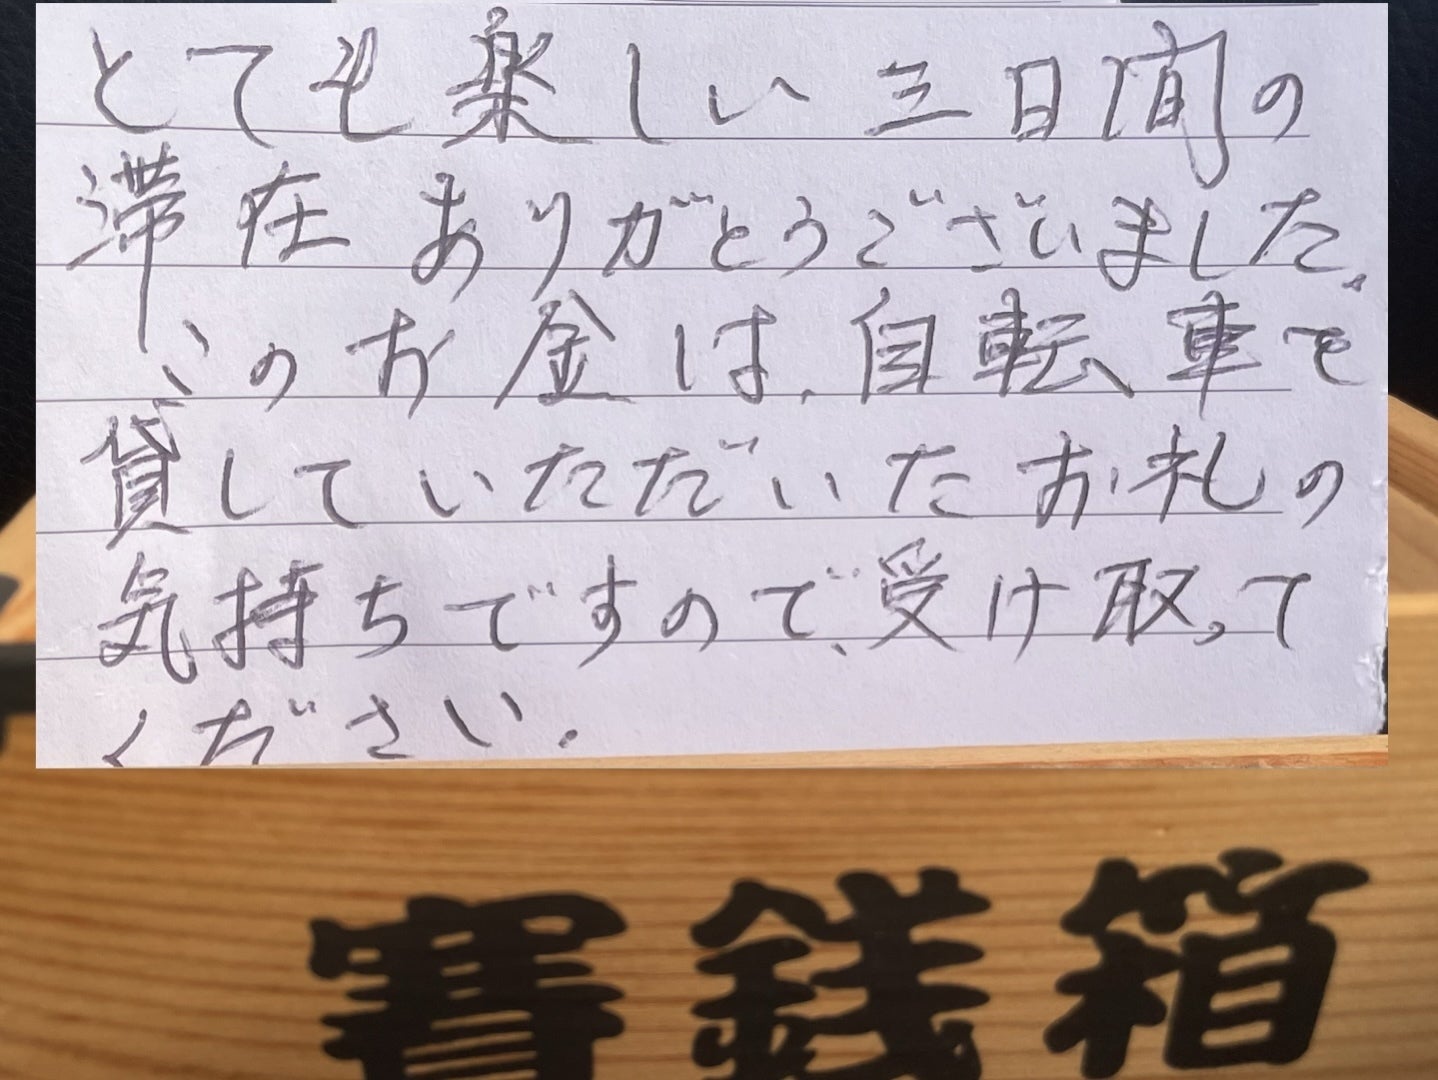 とても楽しい三日間の
滞在ありがとうございました。
このお金は、自転車を
貸していただいたお礼の
気持ちですので、受け取って
ください。
賽銭箱